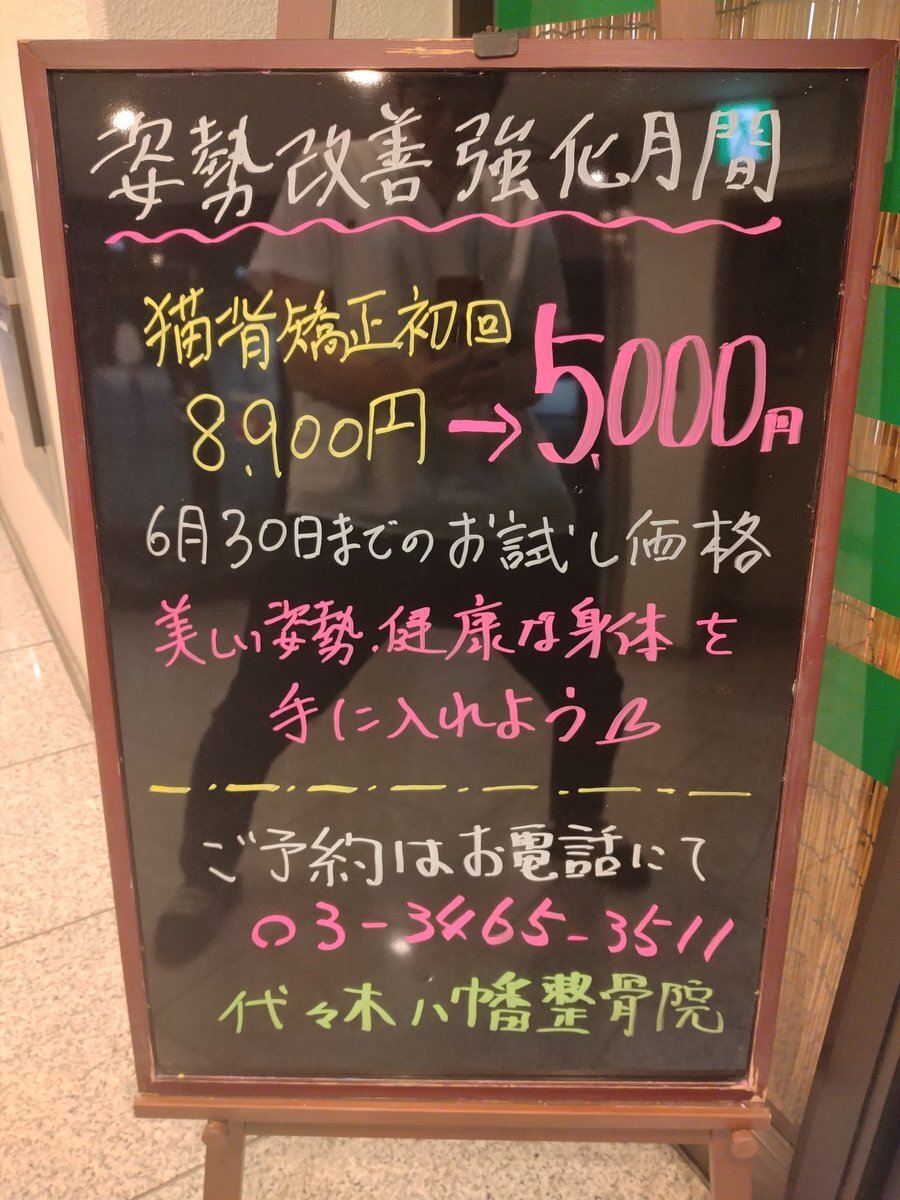 姿勢改善強化月間
猫背矯正初回
8,900円→5,000円
6月30日までのお試し価格
美しい姿勢.健康な身体を
手に入れよう!!
ご予約はお電話にて
03-3465-3511
代々木八幡整骨院